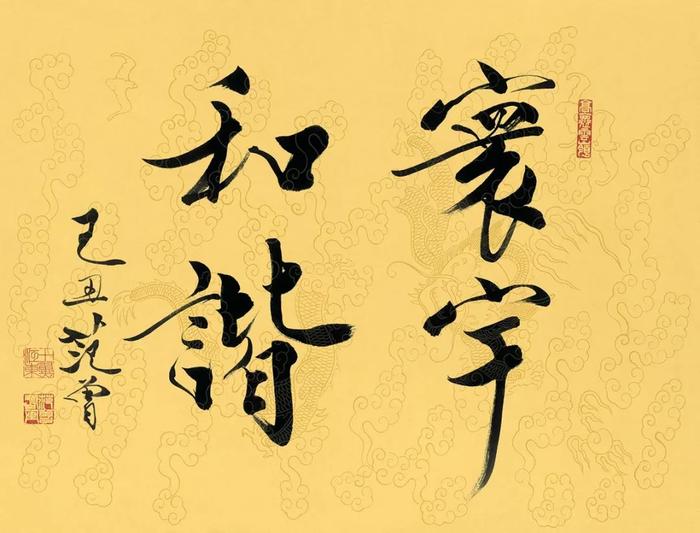 寰宇
和諧
己丑范曾